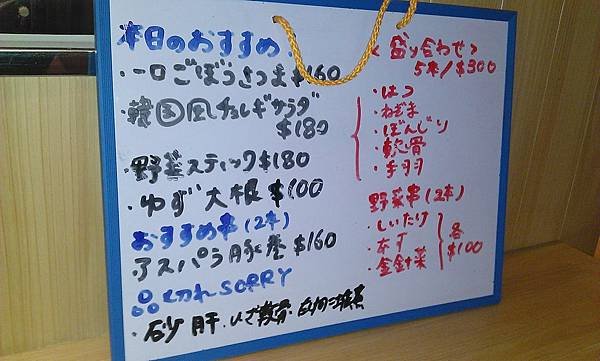 本日のおすすめ
・一口ごぼうさつま $160
・韓国風チョレギサラダ
$180
・野菜スティック $180
・ゆず大根 $100
おすすめ串(2本)
アスパラ豚巻 $160
品切れSORRY
・砂肝・ひざ軟骨・
<盛り合わせ>
5本/$300
・はつ
・ねぎま
・ぼんじり
・軟骨
・手羽
野菜串(2本)
・しいたけ
・なす
・金針菜
各
$100